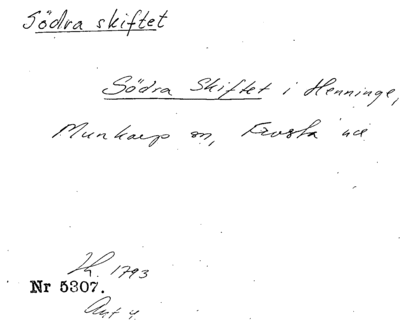 Södra skiftet
Södra Skiftet i Henninge,
Munkarp sn, Frosta
1793
Nr 5307.